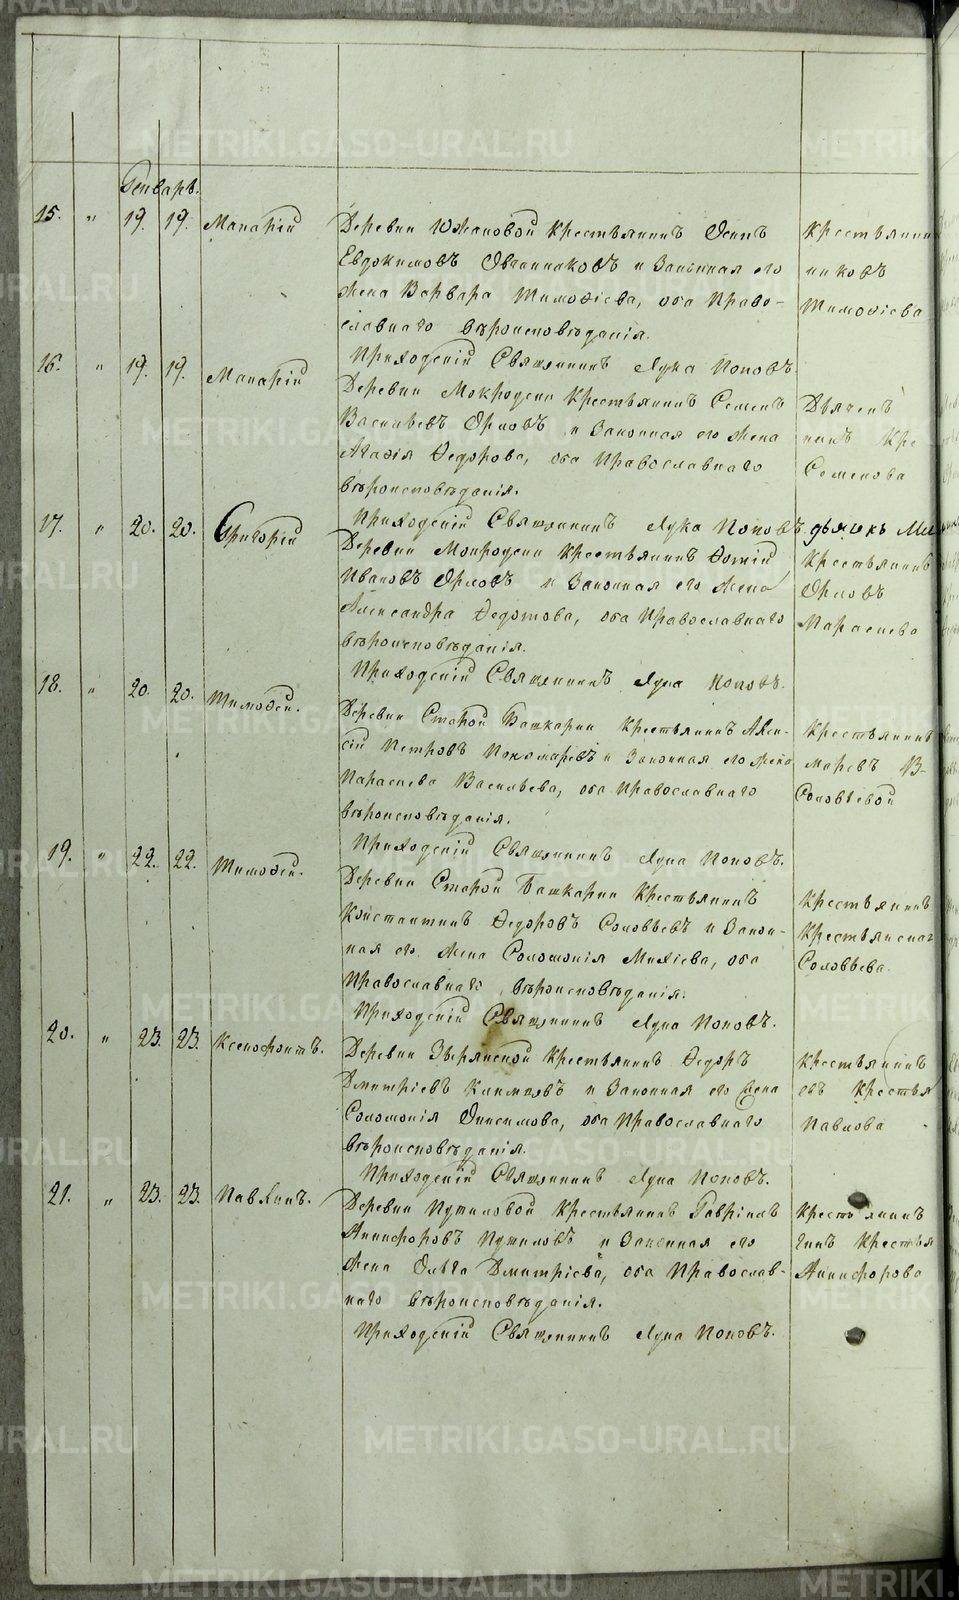 METRIKI.GASO-URAL.RU
Генварь.
15. " 19. 19. Макарій
Деревни Южаковой Крестьянинъ Осипъ
Евдокимовъ Овчинниковъ и Законная его
Жена Варвара Тимофіева, оба Право-
славнаго вѣроисповѣданія.
Приходскій Священникъ Лука Поповъ.
Крестьянин
никовъ
Тимофіева
16. " 19. 19. Макарій
Деревни Мокродски Крестьянинъ Семенъ
Васильевъ Орловъ и Законная его Жена
Агафія Федорова, оба Православнаго
вѣроисповѣданія.
Приходскій Священникъ Лука Поповъ
нинъ Кре
Семенова
дьячокъ Ми
17. " 20. 20. Григорій
Деревни Мокродски Крестьянинъ Фотій
Ивановъ Орловъ и Законная его Жена
Александра Федотова, оба Православнаго
вѣроисповѣданія.
Приходскій Священникъ Лука Поповъ.
Крестьянинъ
Орловъ
Параскева
18. " 20. 20. Тимофей.
Деревни Старой Башкарки Крестьянинъ Алек-
сій Петровъ Пономаревъ и Законная его Жена
Параскева Васильева, оба Православнаго
вѣроисповѣданія.
Приходскій Священникъ Лука Поповъ.
Крестьянинъ
маревъ В-
Соловьевой
19. " 22. 22. Тимофей.
Деревни Старой Башкарки Крестьянинъ
Константинъ Федоровъ Соловьевъ и Закон-
ная его Жена Соломонія Михіева, оба
Православнаго вѣроисповѣданія.
Приходскій Священникъ Лука Поповъ.
Крестьянинъ
Крестьянская
Соловьева.
20. " 23. 23. Ксенофонтъ.
Деревни Зырянской Крестьянинъ Федоръ
Дмитріевъ Климовъ и Законная его Жена
Соломонія Онисимова, оба Православнаго
вѣроисповѣданія.
Приходскій Священникъ Лука Поповъ.
Крестьянинъ
евъ Крестья
Павлова
21. " 23. 23. Павлинъ.
Деревни Путиловой Крестьянинъ Гавріилъ
Аникифоровъ Путиловъ и Законная его
Жена Ольга Дмитріева, оба Православ-
наго вѣроисповѣданія.
Приходскій Священникъ Лука Поповъ.
Крестьянинъ
гинъ Крестья
Аникифорова